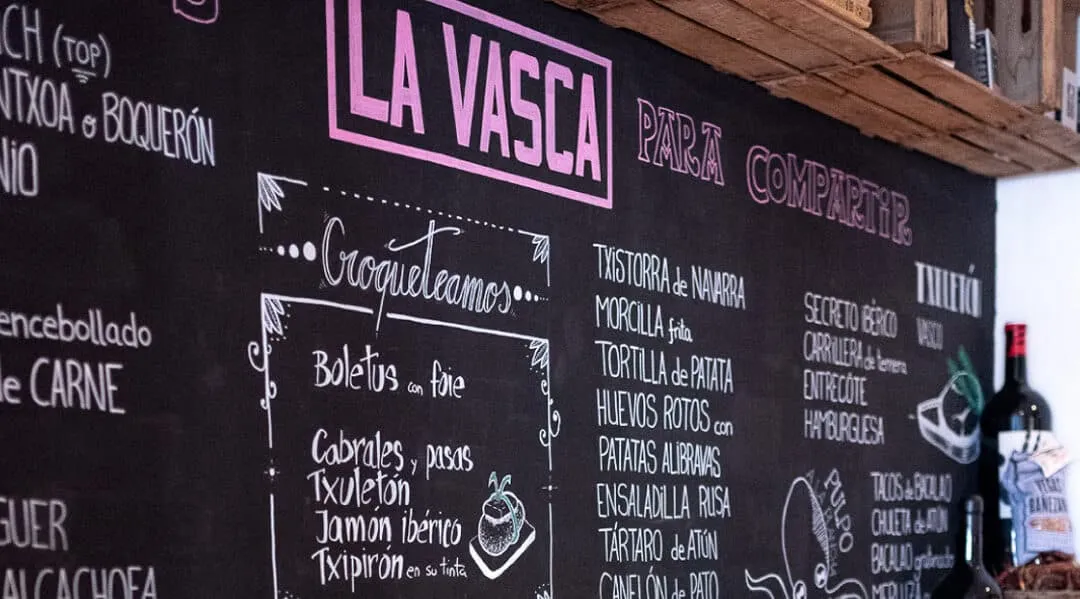 LA VASCA
PARA COMPARTIR
(TOP)
o BOQUERÓN
encebollado
de CARNE
Croqueteamos
Boletus con foie
Cabrales y pasas
Txuletón
Jamón ibérico
Txipirón en su tinta
TXISTORRA de NAVARRA
MORCILLA frita
TORTILLA de PATATA
HUEVOS ROTOS con
PATATAS ALIBRAVAS
ENSALADILLA RUSA
TÁRTARO de ATÚN
CANELÓN de PATO
SECRETO IBÉRICO
CARRILLERA de ternera
ENTRECÔTE
HAMBURGUESA
TXULETÓN
VASCO
PULPO
TACOS de BACALAO
CHULETA de ATÚN
BACALAO gratinado